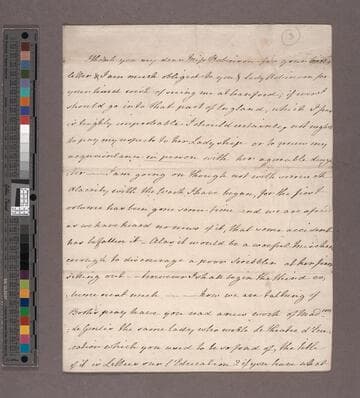 3
I thank you my dear Miss Robinson for your
letter & I am much obliged to you & Lady Robinson for
your kind wish of seeing me at ; if ever I
should go into that part of England, which I fear
is highly improbable I should certainly not neglect
to pay my respects to her Ladyship or to renew my
acquaintance in person with her agreeable Daugh
ter — I am going on though not with so much
alacrity with the work I have began, for the first
volume has been gone some time and we are afraid
as we have heard no news of it, that some accident
has befallen it — Alas it would be a woeful mischance
enough to discourage a poor Scribbler at her first
setting out — however I shall begin the third vo
lume next week — now we are talking of
Books pray have you read a new work of Madme
de Genlis the same lady who wrote le theatre d'Edu
cation which you used to be so fond of, the title
of it is Letters sur l'Education? if you have what